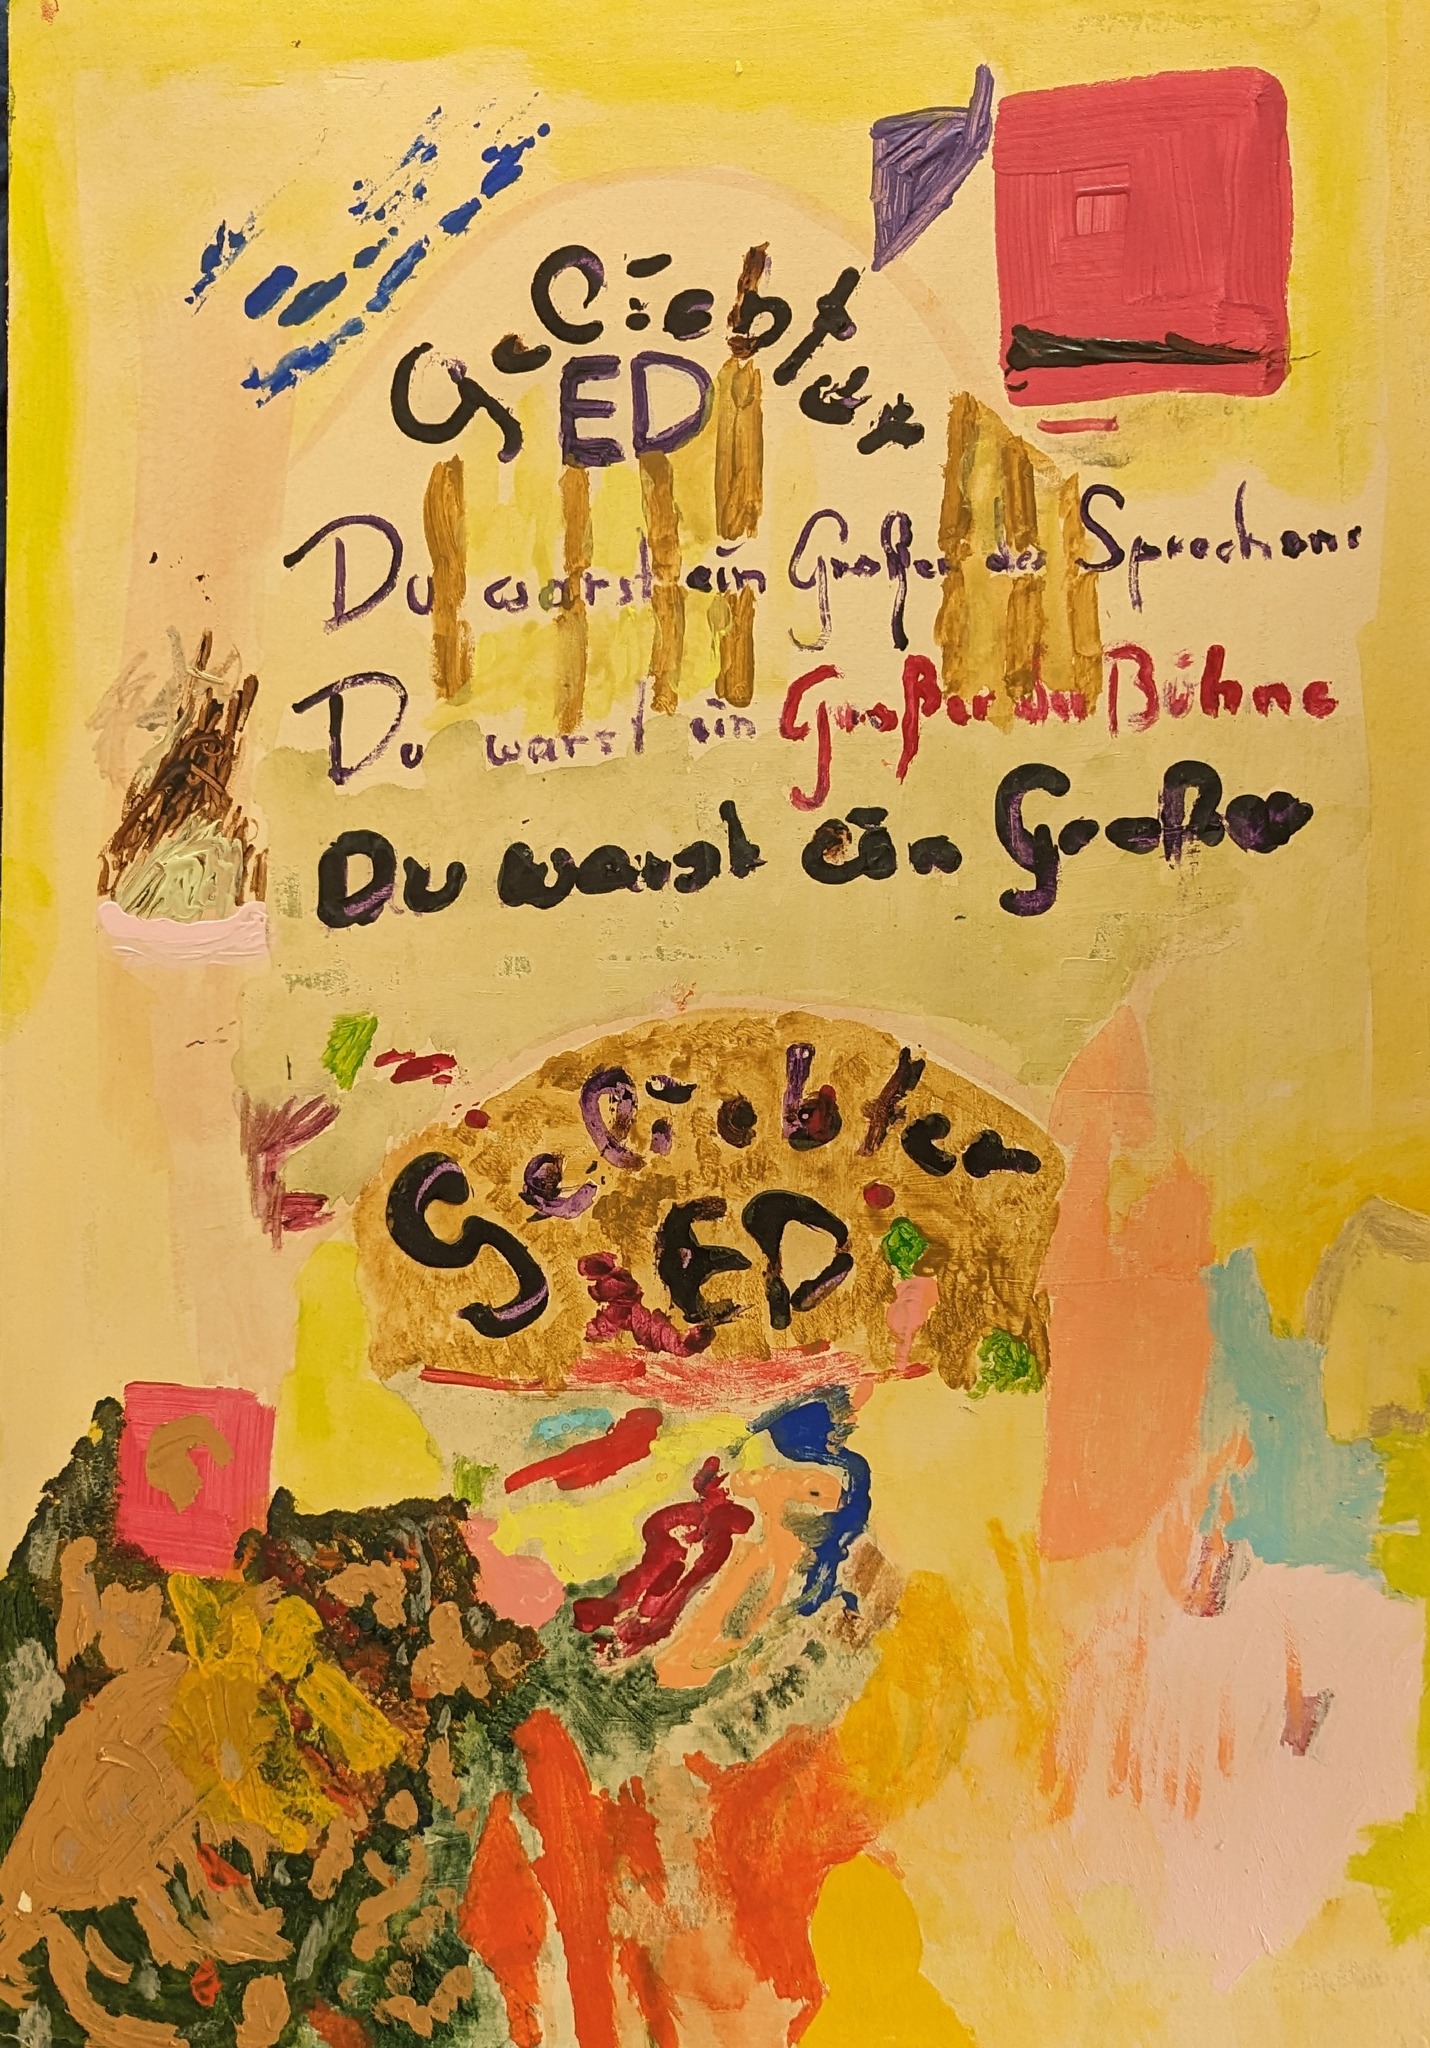 Geliebter
ED
Du warst ein Großer des Sprechens
Du warst ein Großer der Bühne
Du warst ein Großer
Geliebter
ED